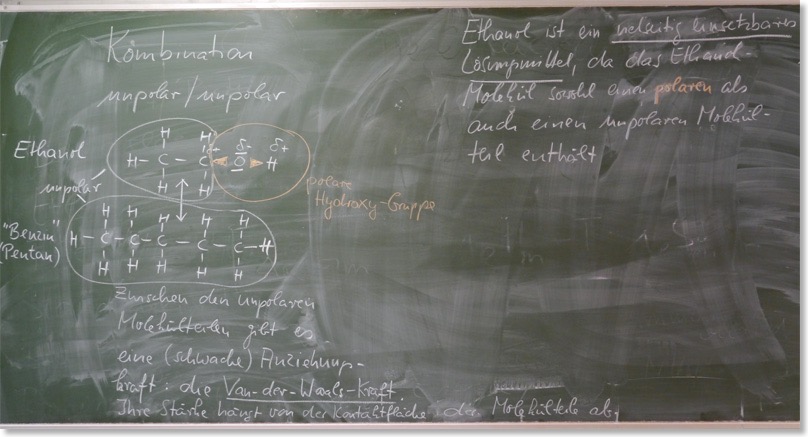 Kombination
unpolar/unpolar
Ethanol
unpolar
H H δ+ δ- δ+
H - C - C O H
H H
polare
Hydroxy-Gruppe
"Benzin"
(Pentan)
H H H H H
H - C - C - C - C - C - H
H H H H H
Zwischen den unpolaren
Molekülteilen gibt es
eine (schwache) Anziehungs-
kraft: die Van-der-Waals-Kraft.
Ihre Stärke hängt von der Kontaktfläche der Molekülteile ab.
Ethanol ist ein vielseitig einsetzbares
Lösungsmittel, da das Ethanol-
Molekül sowohl einen polaren als
auch einen unpolaren Molekül-
teil enthält